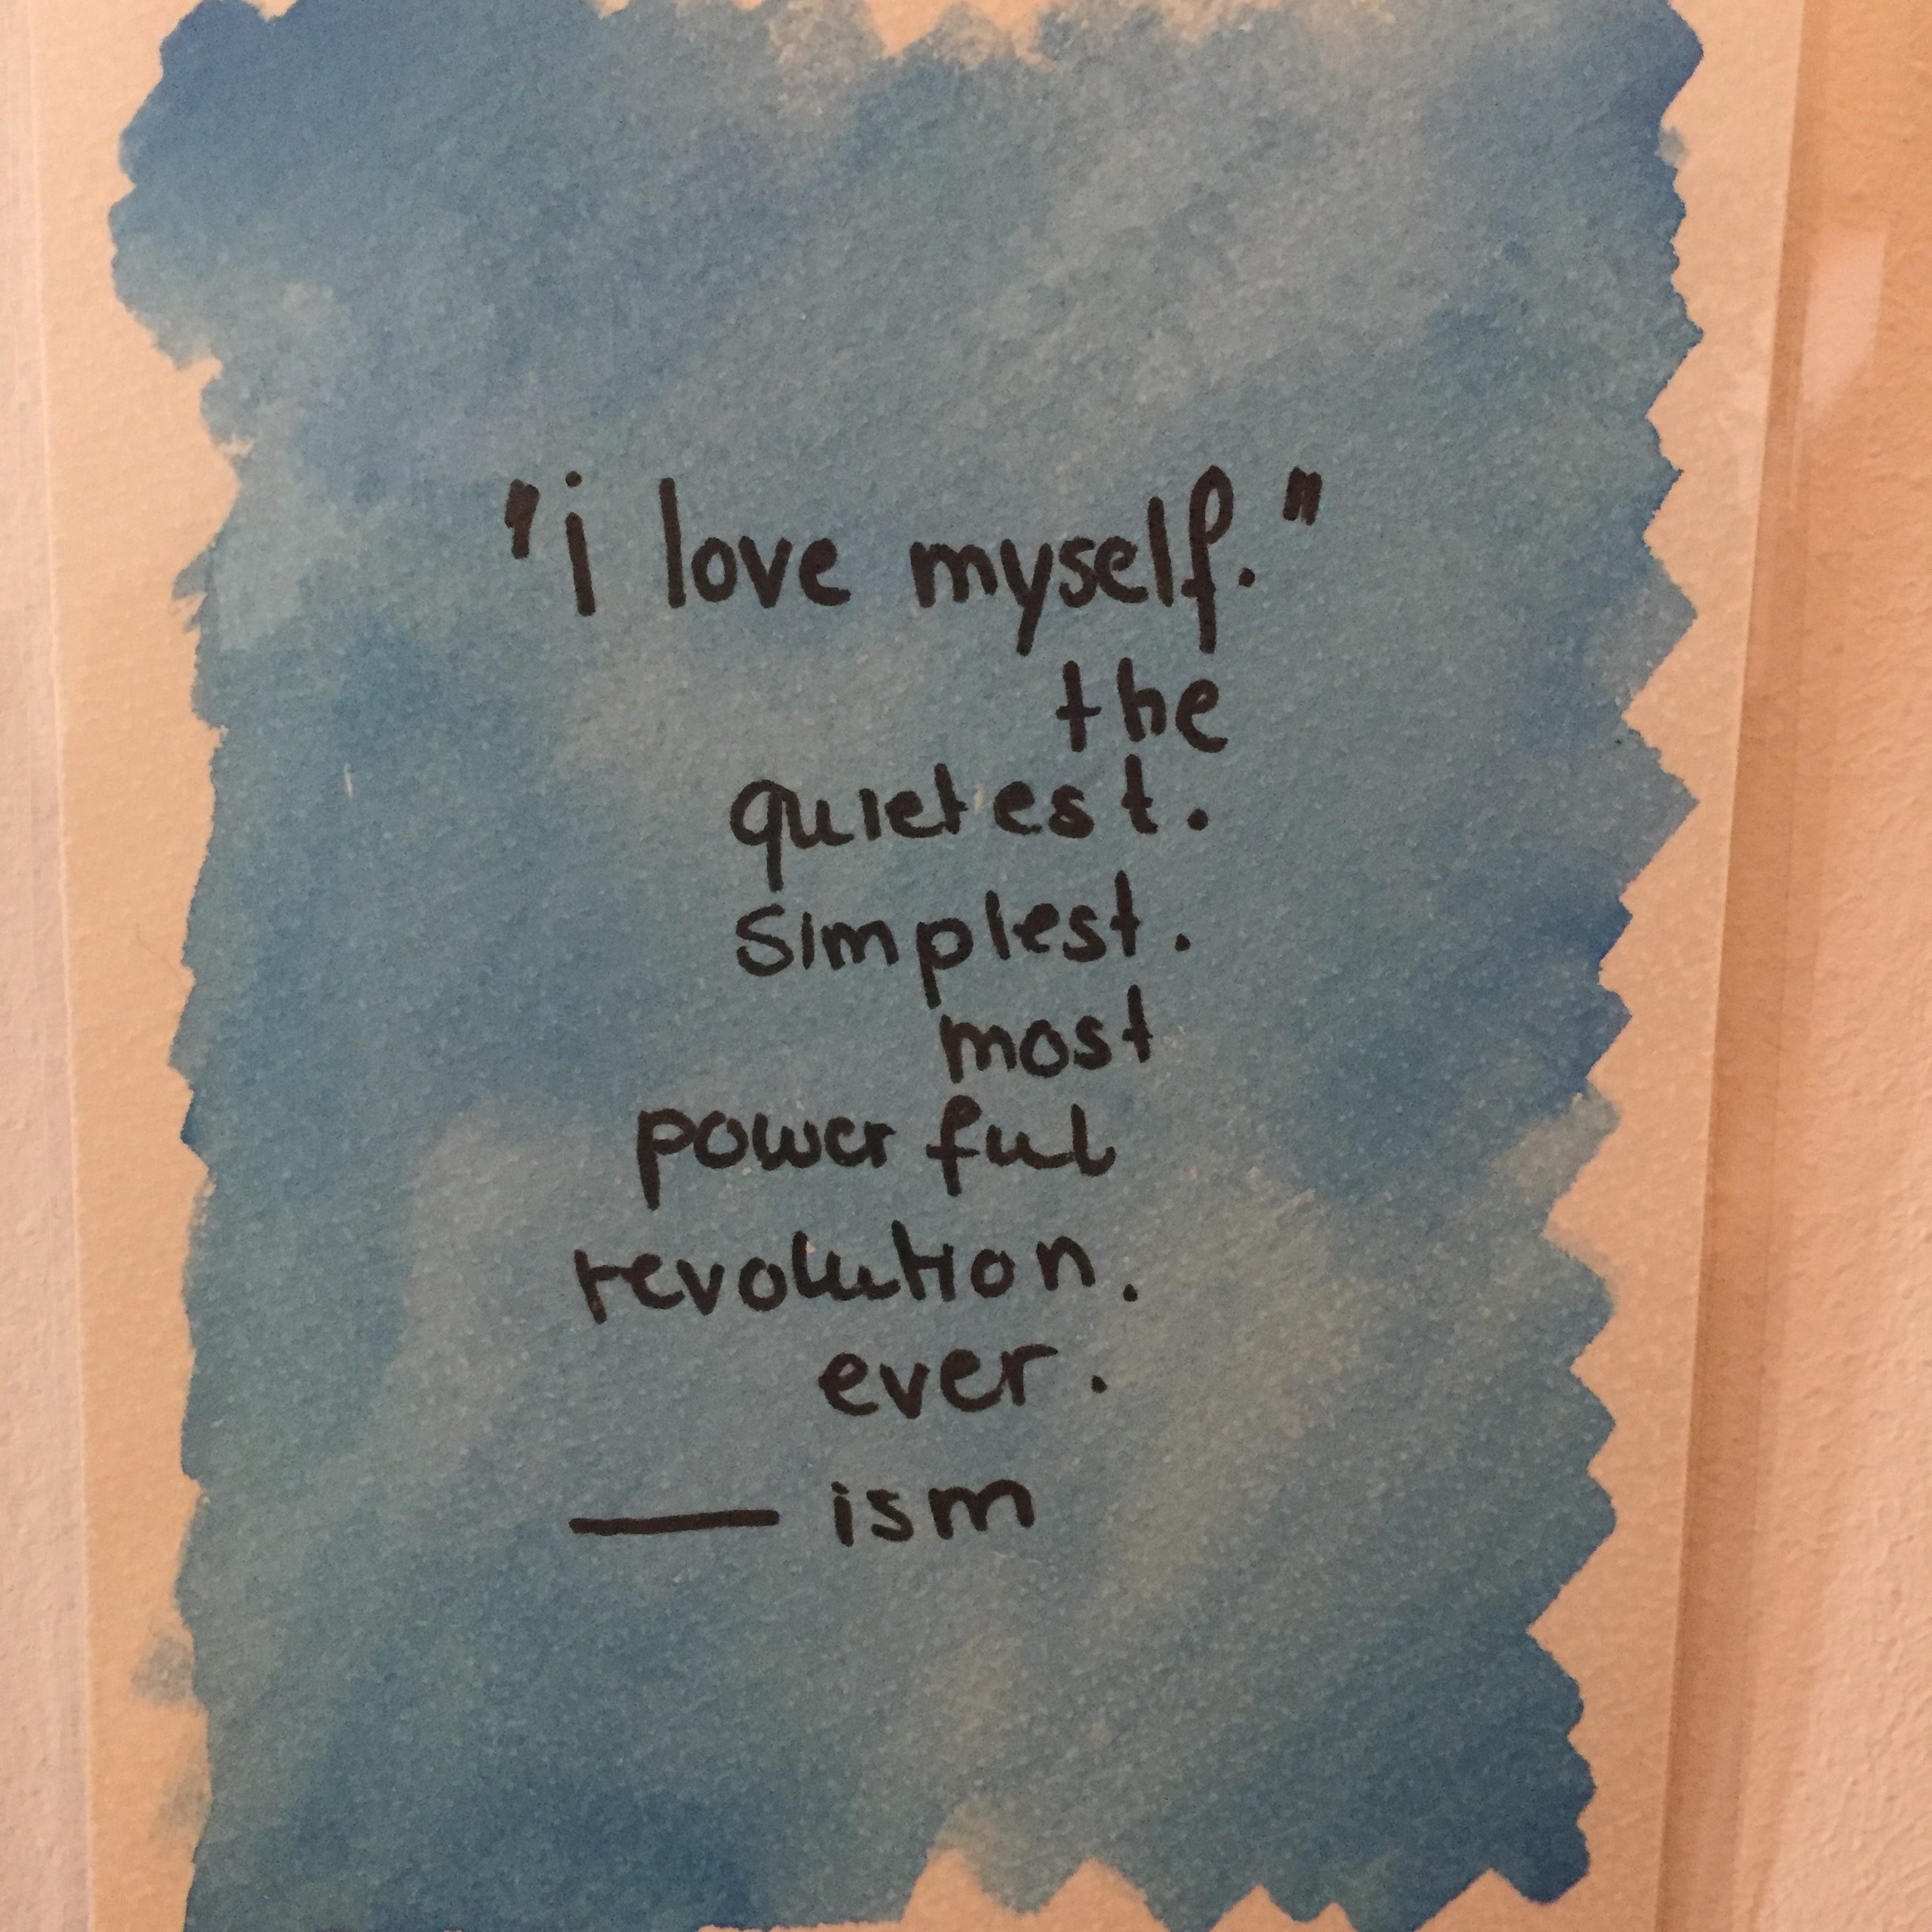 "i love myself."
the
quietest.
simplest.
most
powerful
revolution.
ever.
— ism